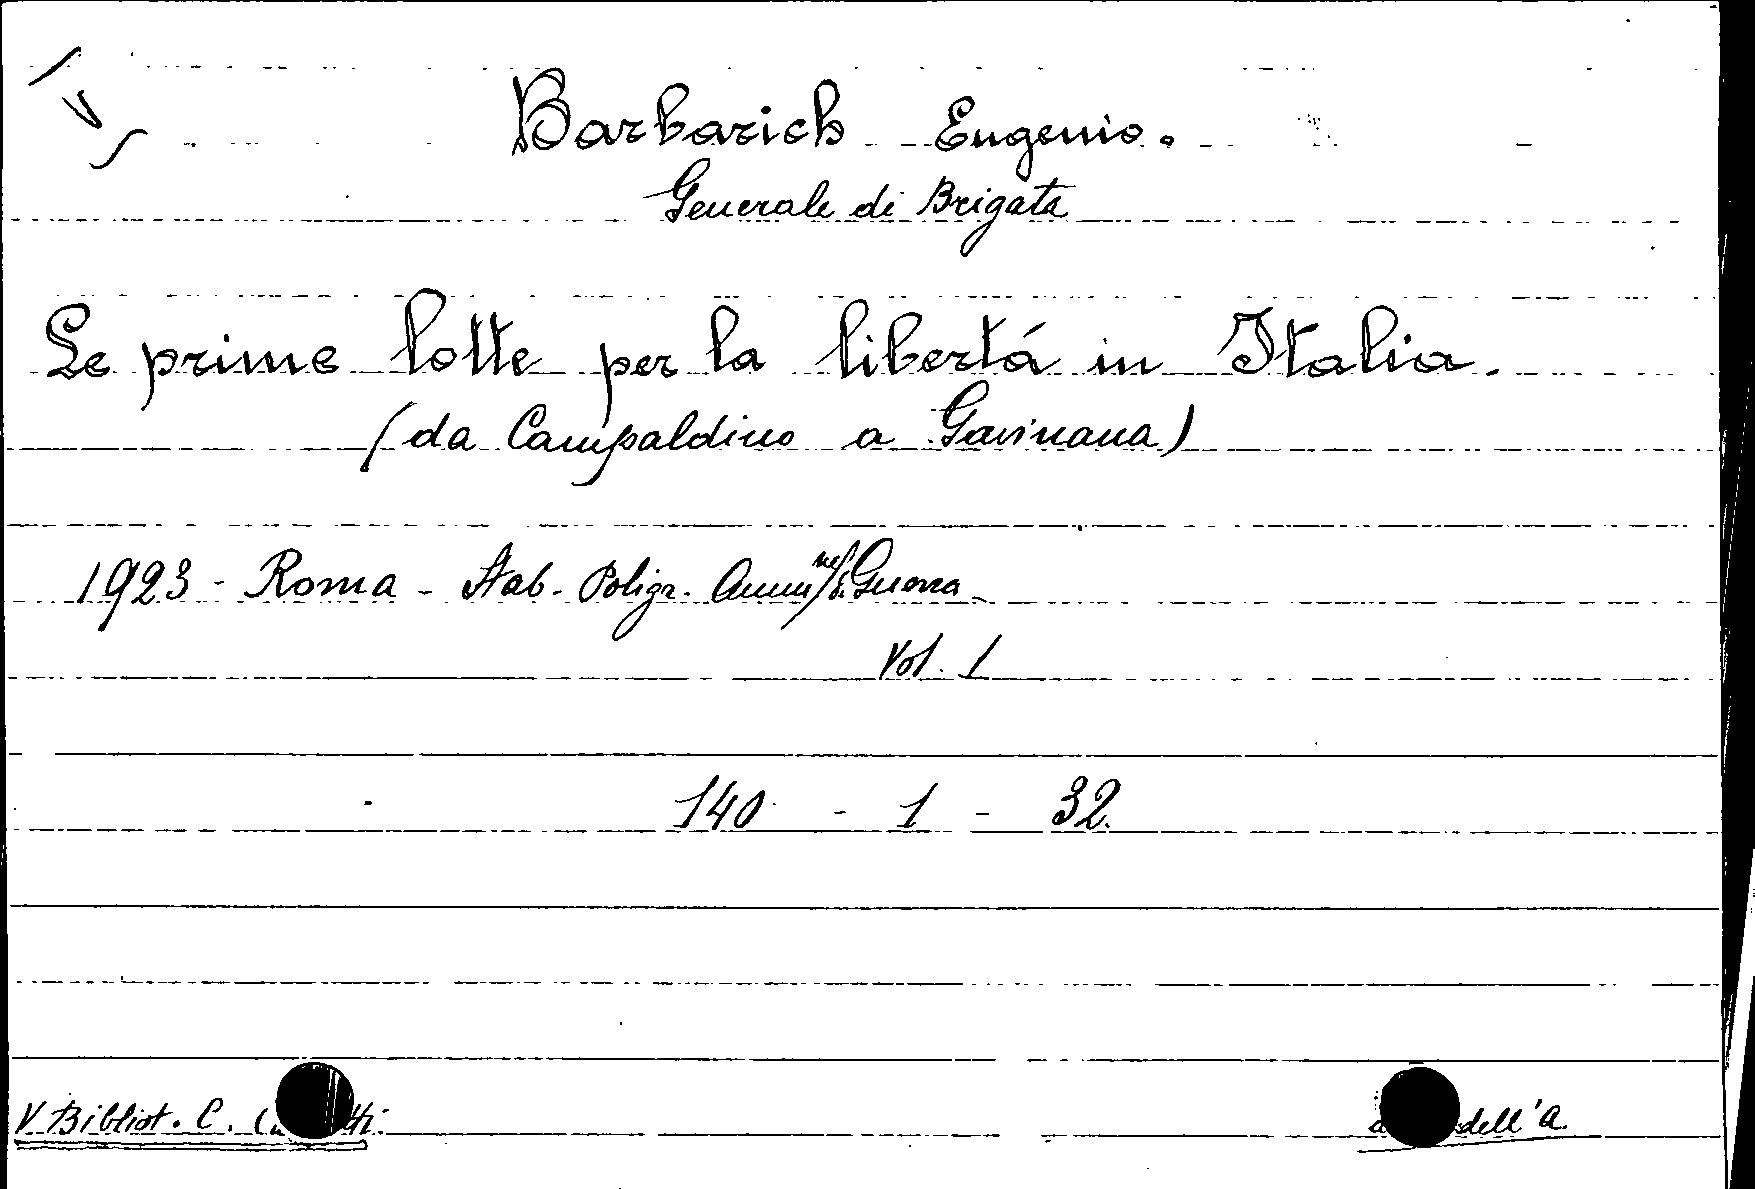 Barbarich Eugenio.
Generale di Brigata
Le prime lotte per la libertá in Italia.
(da Campaldino a Gavinana)
1923 - Roma - Stab. Poligr. Amm/ne Guerra
Vol. 1
140 - 1 - 32.
V Bibliot. C.
dell'A.